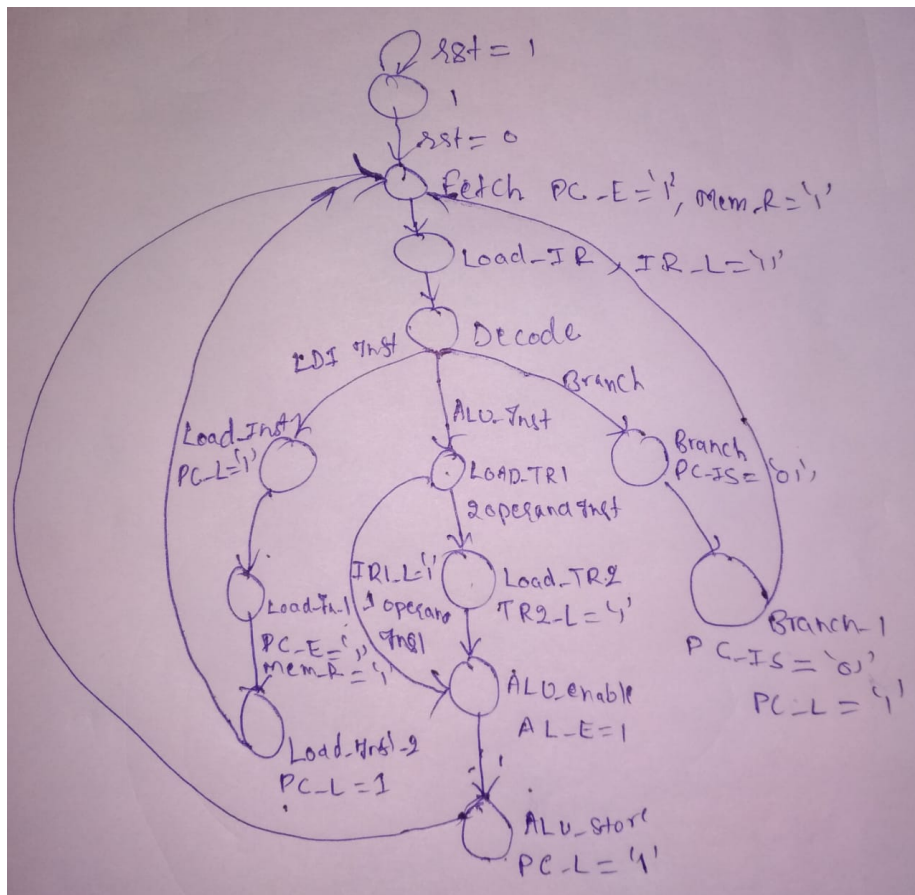 rst = 1
1
rst = 0
Fetch PC_E='1', Mem_R='1'
Load_IR, IR_L='1'
Decode
LDI Inst
Branch
ALU_Inst
Load_Inst
PC_L='1'
Branch
PC_IS='01'
LOAD_TR1
2 operand Inst
IR1_L='1'
1 operand
Inst
Load_TR2
TR2_L='1'
Load_In_1
PC_E='1'
Mem_R='1'
Branch_1
PC_IS='01'
PC_L='1'
ALU_enable
AL_E=1
Load_Inst_2
PC_L=1
ALU_store
PC_L='1'